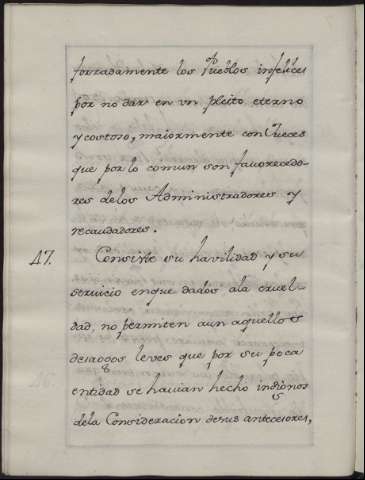 forzadamente los Pueblos infelices
por no dar en un pleito eterno
y costoso, maiormente con Jueces
que por lo comun son favorecedo-
res delos Administradores y
recaudadores.
47. Consiste su havilidad y su
servicio enque dados ala cruel-
dad, no permiten aun aquellos
desaogos leves que por su poca
entidad se havian hecho indignos
dela Consideracion desus antecesores,